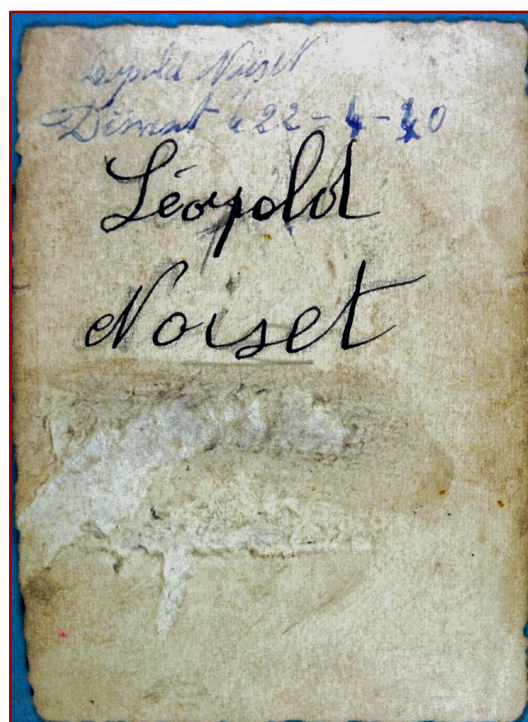 Léopold Noiset
Dinant le 22-4-40
Léopold
Noiset